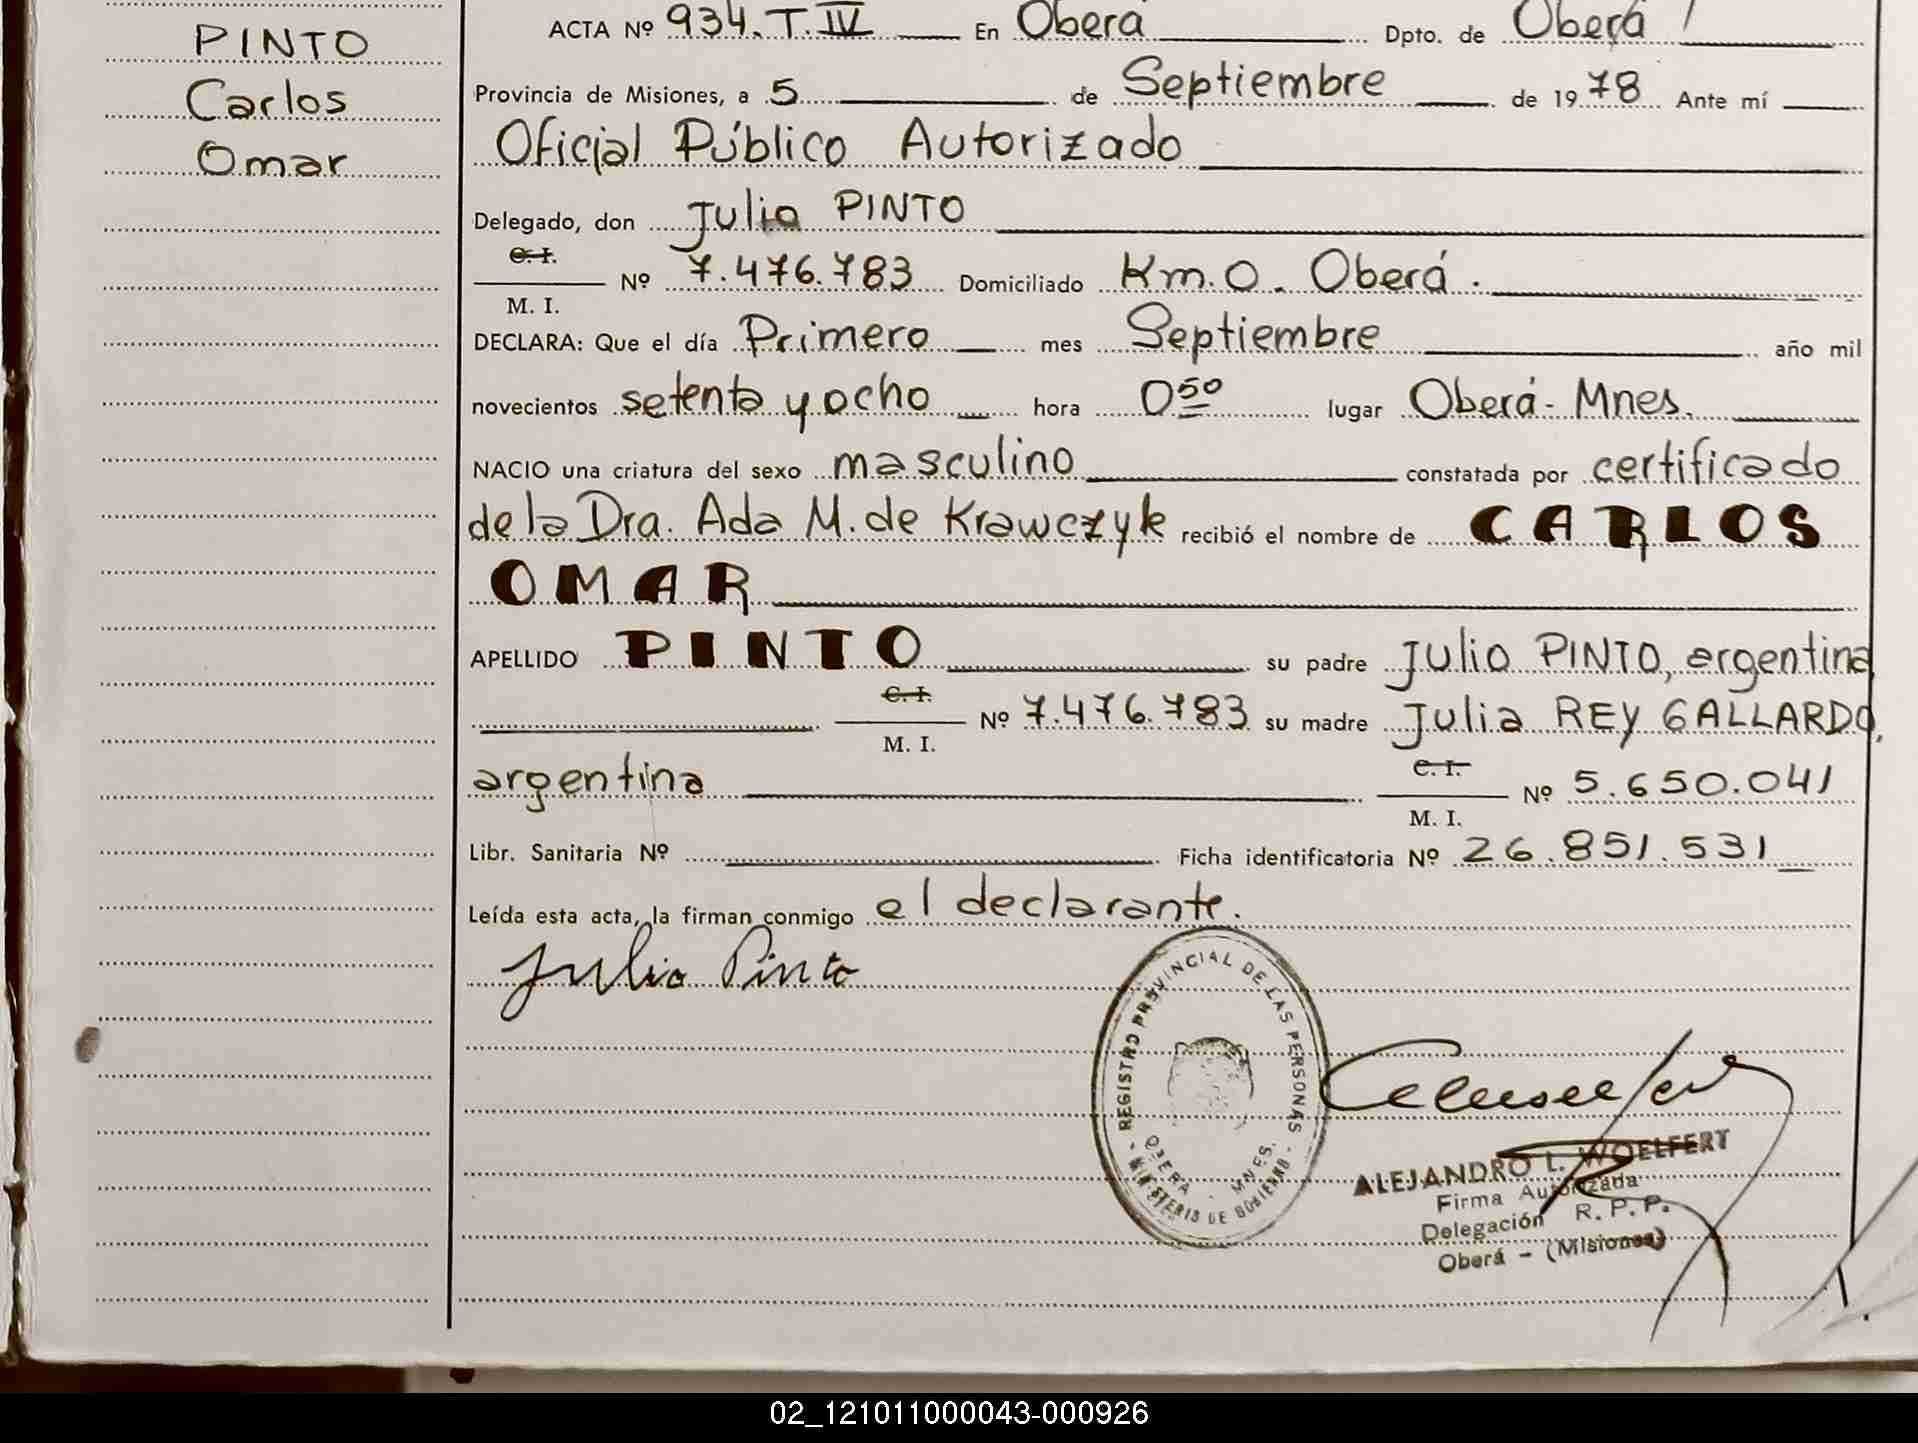 PINTO
Carlos
Omar
ACTA Nº 934. T. IV En Oberá Dpto. de Oberá
Provincia de Misiones, a 5 de Septiembre de 1978 Ante mí
Oficial Público Autorizado
Delegado, don Julio PINTO
C. I.
M. I.
Nº 7.476.783 Domiciliado Km. 0. Oberá.
DECLARA: Que el día Primero mes Septiembre año mil
novecientos setenta y ocho hora 0 50 lugar Oberá - Mnes.
NACIO una criatura del sexo masculino constatada por certificado
de la Dra. Ada M. de Krawczyk recibió el nombre de CARLOS
OMAR
APELLIDO PINTO su padre Julio PINTO, argentino
C. I.
M. I.
Nº 7.476.783 su madre Julia REY GALLARDO,
argentina
C. I.
M. I.
Nº 5.650.041
Libr. Sanitaria Nº Ficha identificatoria Nº 26.851.531
Leída esta acta, la firman conmigo el declarante.
Julio Pinto
REGISTRO PROVINCIAL DE LAS PERSONAS
OBERÁ - MNES.
- MINISTERIO DE GOBIERNO -
ALEJANDRO L. WOELFERT
Firma Autorizada
Delegación R. P. P.
Oberá - (Misiones)
02_121011000043-000926